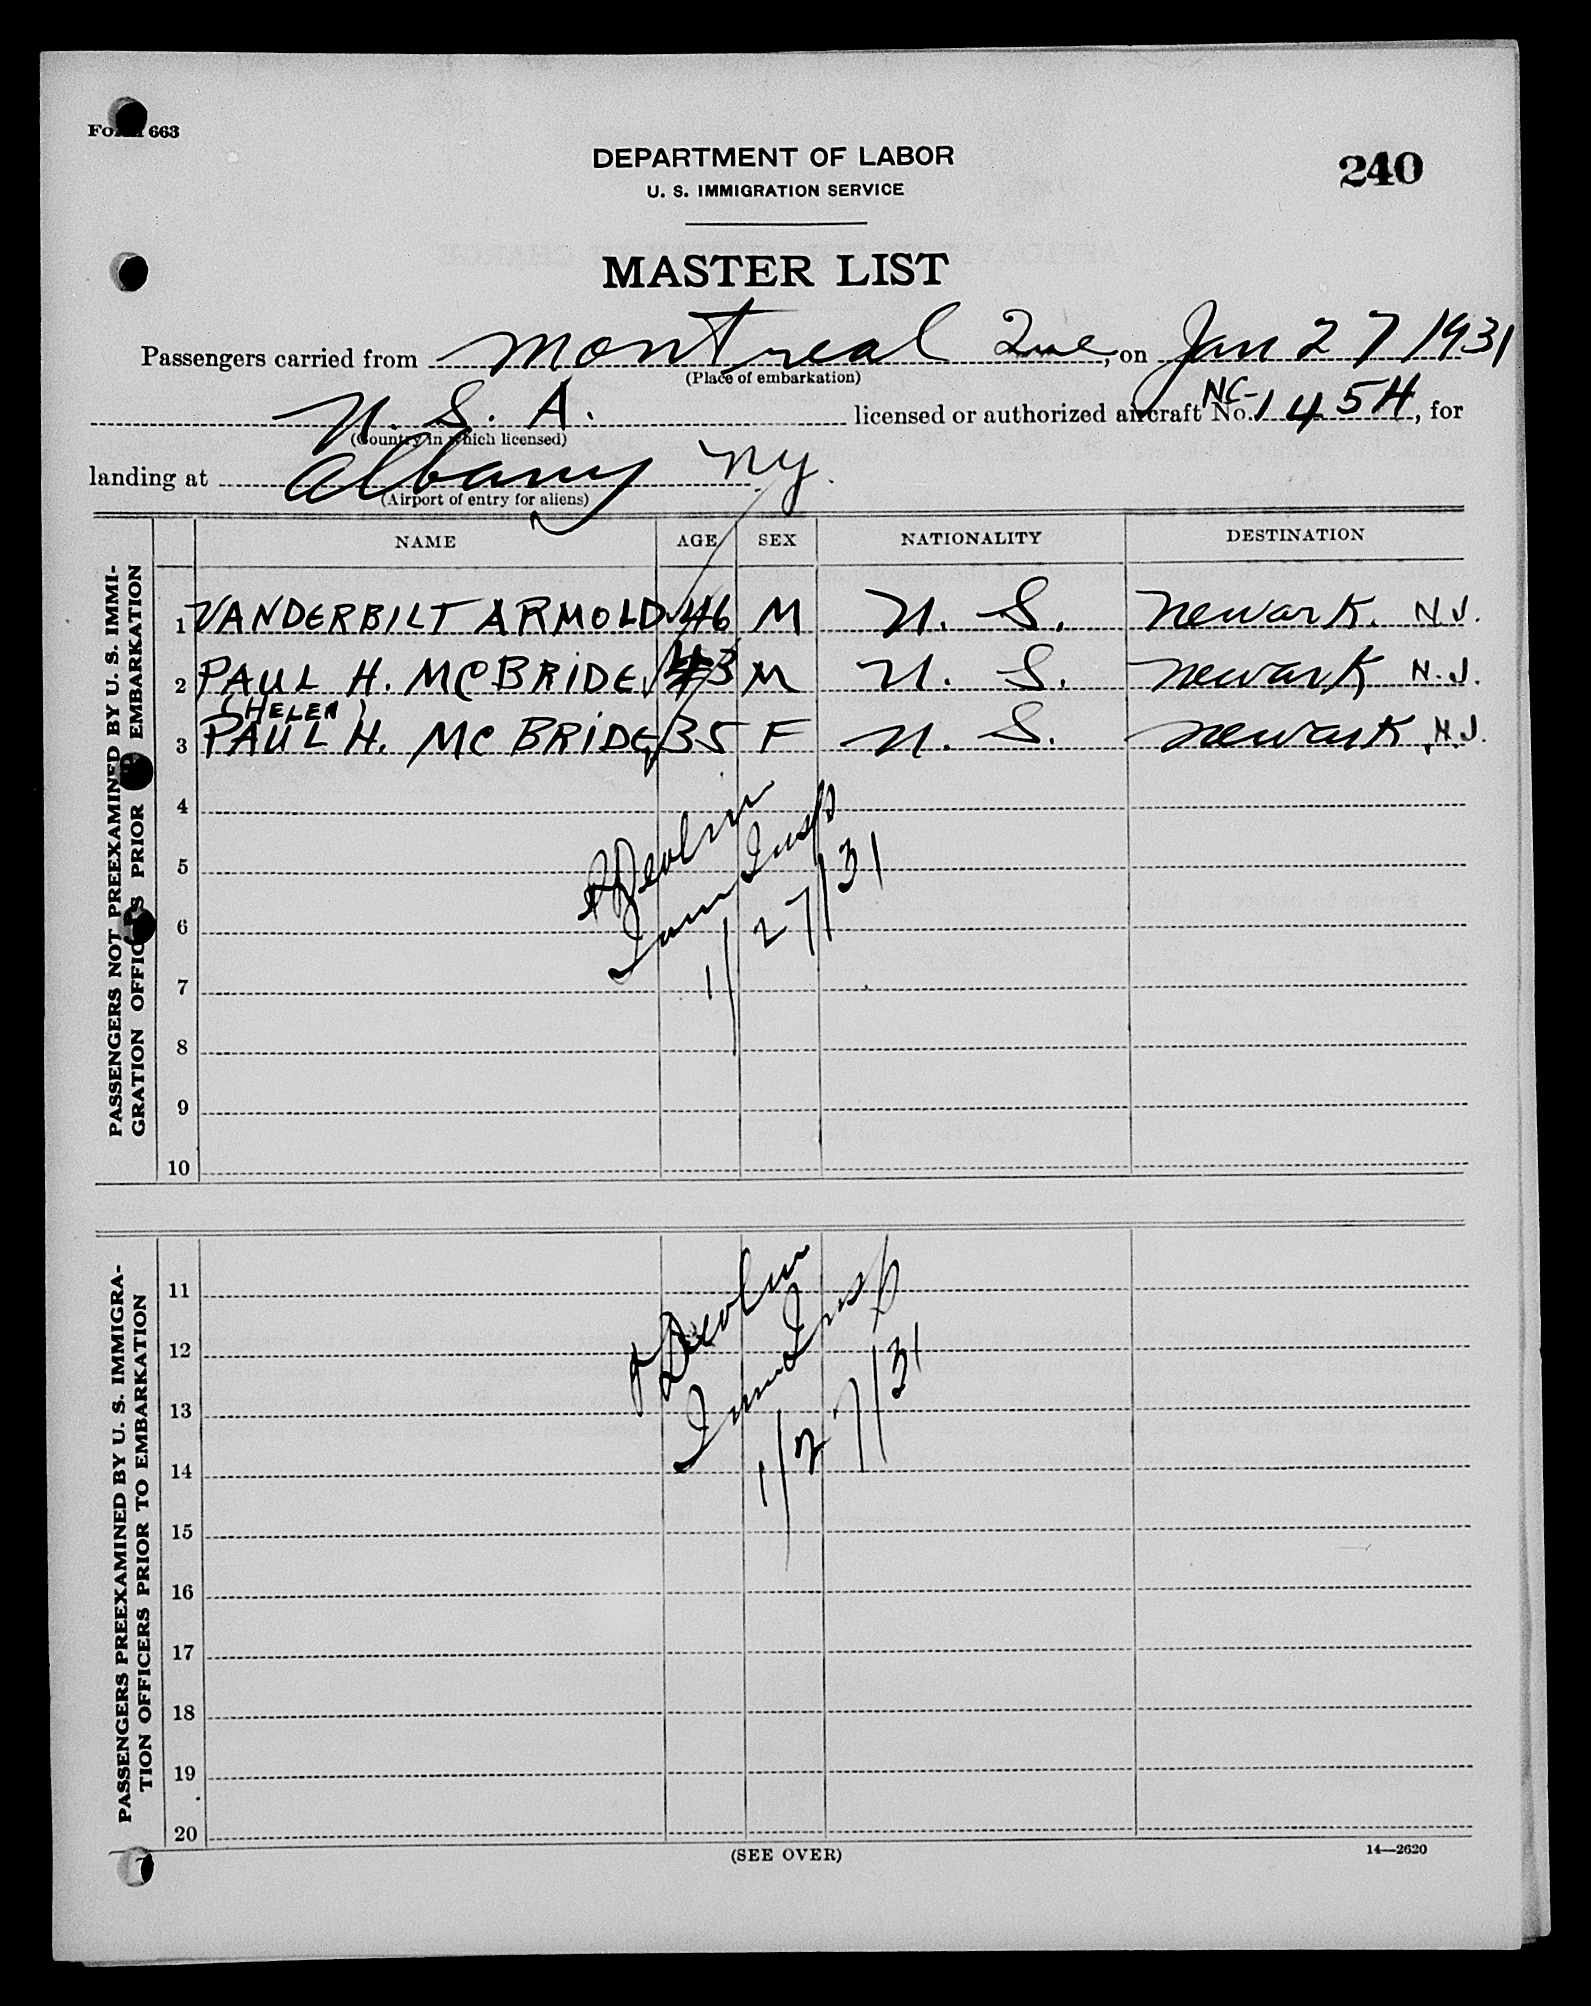 FORM 663
DEPARTMENT OF LABOR
U. S. IMMIGRATION SERVICE
240
MASTER LIST
Passengers carried from Montreal Que, on Jan 27 1931
(Place of embarkation)
U. S. A. licensed or authorized aircraft No. NC-145H, for
(Country in which licensed)
landing at Albany NY.
(Airport of entry for aliens)
NAME AGE SEX NATIONALITY DESTINATION
PASSENGERS NOT PREEXAMINED BY U. S. IMMI-
GRATION OFFICERS PRIOR TO EMBARKATION
1 VANDERBILT ARMOLD 46 M U. S. Newark. N.J.
2 PAUL H. MCBRIDE 43 M U. S. Newark N.J.
(HELEN)
3 PAUL H. MCBRIDE 35 F U. S. Newark N.J.
4
5
6
7
8
9
10
Devlin
Imm Insp
1/27/31
PASSENGERS PREEXAMINED BY U. S. IMMIGRA-
TION OFFICERS PRIOR TO EMBARKATION
11
12
13
14
15
16
17
18
19
20
Devlin
Imm Insp
1/27/31
(SEE OVER)
14—2620